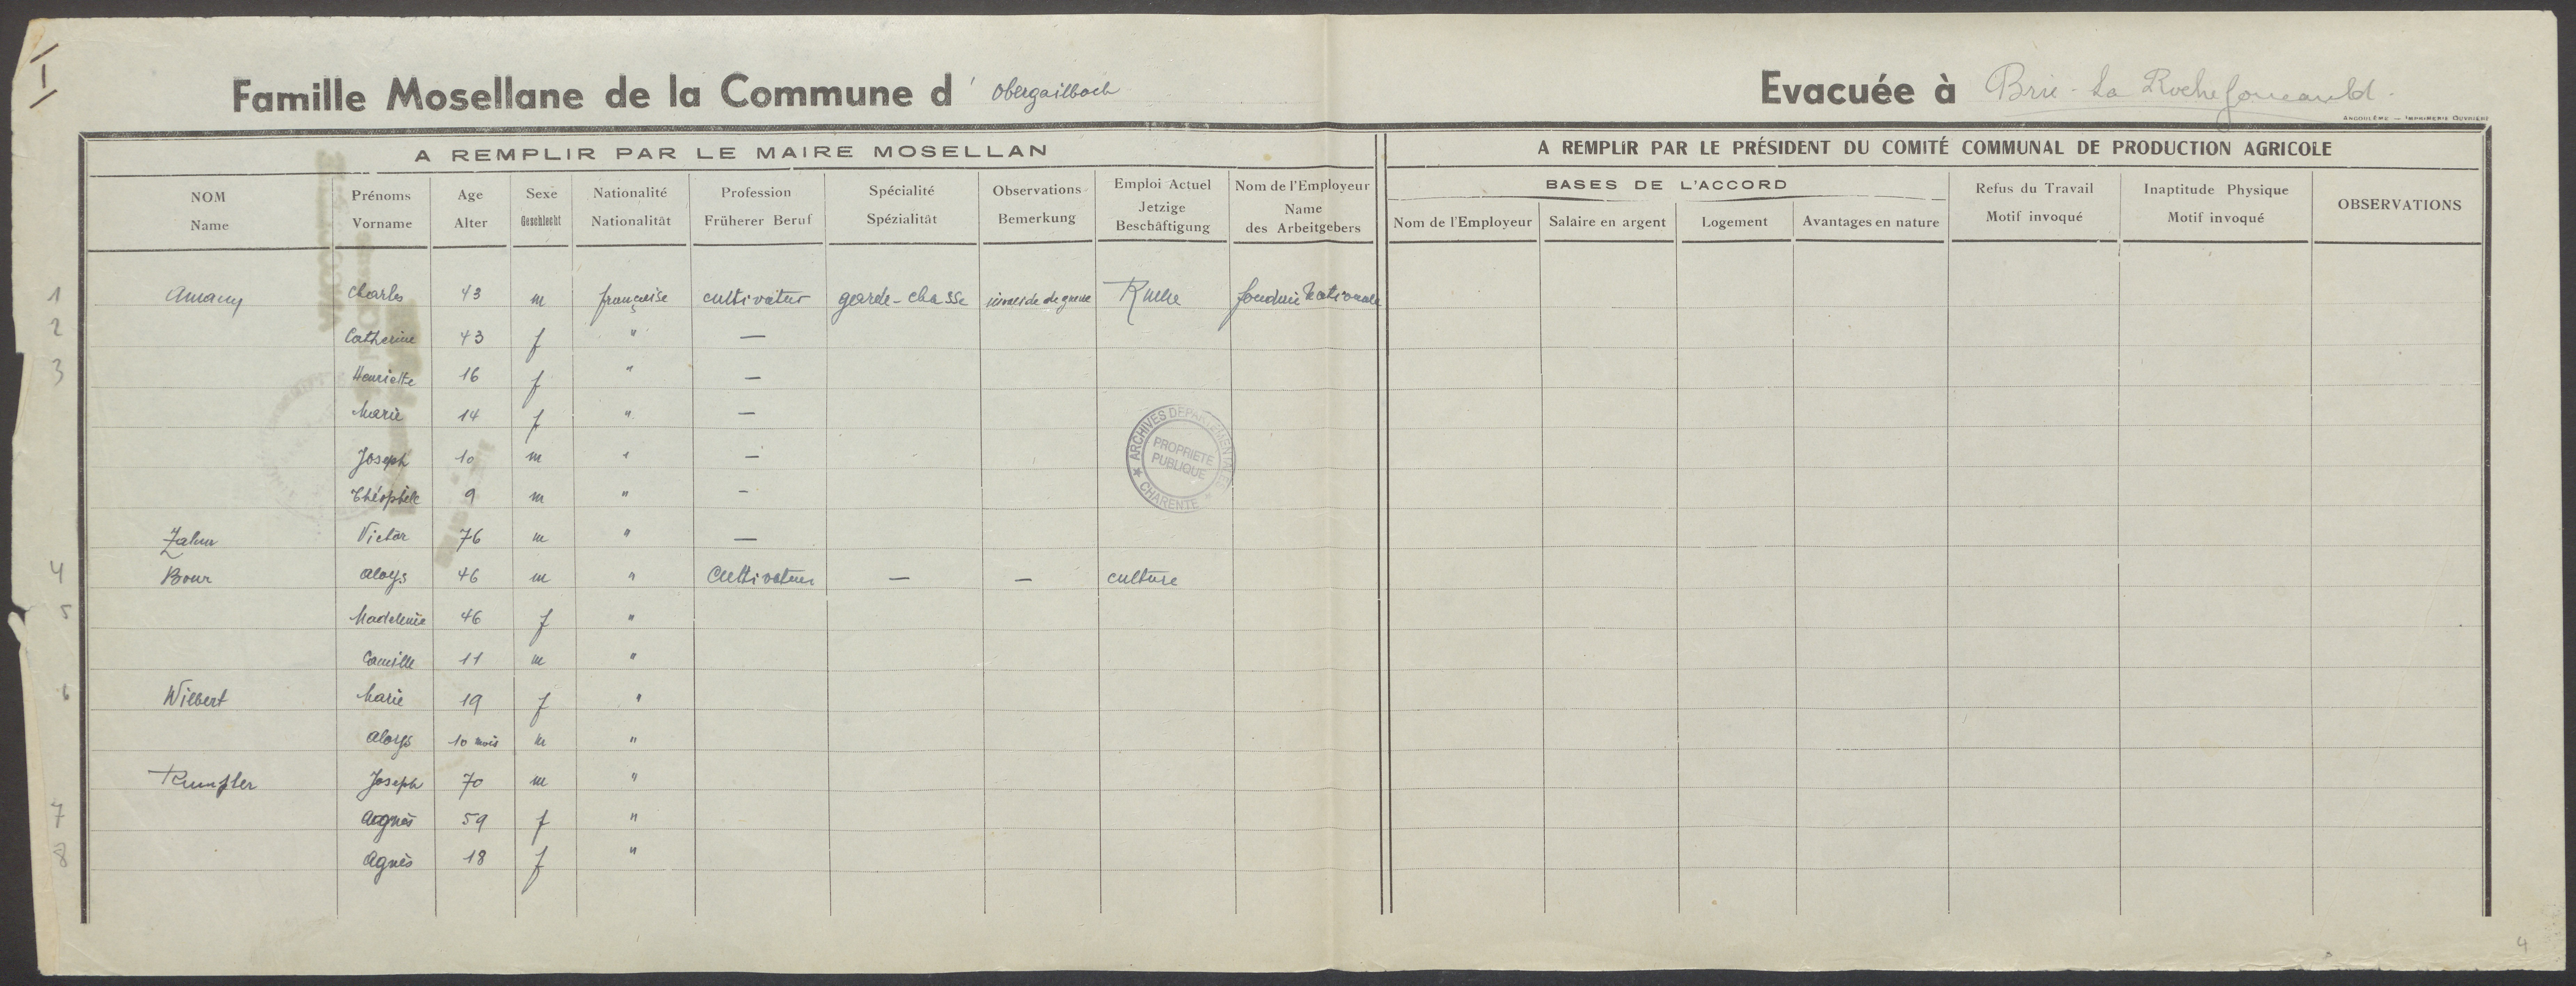 I
Famille Mosellane de la Commune d' Obergailbach
Evacuée à Brie-La Rochefoucauld.
ANGOULÊME — IMPRIMERIE OUVRIÈRE
A REMPLIR PAR LE MAIRE MOSELLAN
A REMPLIR PAR LE PRÉSIDENT DU COMITÉ COMMUNAL DE PRODUCTION AGRICOLE
BASES DE L'ACCORD
NOM Name
Prénoms Vorname
Age Alter
Sexe Geschlecht
Nationalité Nationalität
Profession Früherer Beruf
Spécialité Spézialität
Observations Bemerkung
Emploi Actuel Jetzige Beschäftigung
Nom de l'Employeur Name des Arbeitgebers
Nom de l'Employeur
Salaire en argent
Logement
Avantages en nature
Refus du Travail Motif invoqué
Inaptitude Physique Motif invoqué
OBSERVATIONS
1 Amany Charles 43 m française cultivateur garde-chasse invalide de guerre Ruelle fonderie Nationale
2 Catherine 43 f " —
3 Henriette 16 f " —
Marie 14 f " —
Joseph 10 m " —
Théophile 9 m " —
Zahm Victor 76 m " —
4 Bour Aloys 46 m " Cultivateur — — culture
5 Madeleine 46 f "
Camille 11 m "
6 Wilbert Marie 19 f "
Aloys 10 mois m "
Rumpler Joseph 70 m "
7 Agnès 59 f "
8 Agnès 18 f "
ARCHIVES DÉPARTEMENTALES
PROPRIETE
PUBLIQUE
CHARENTE
4